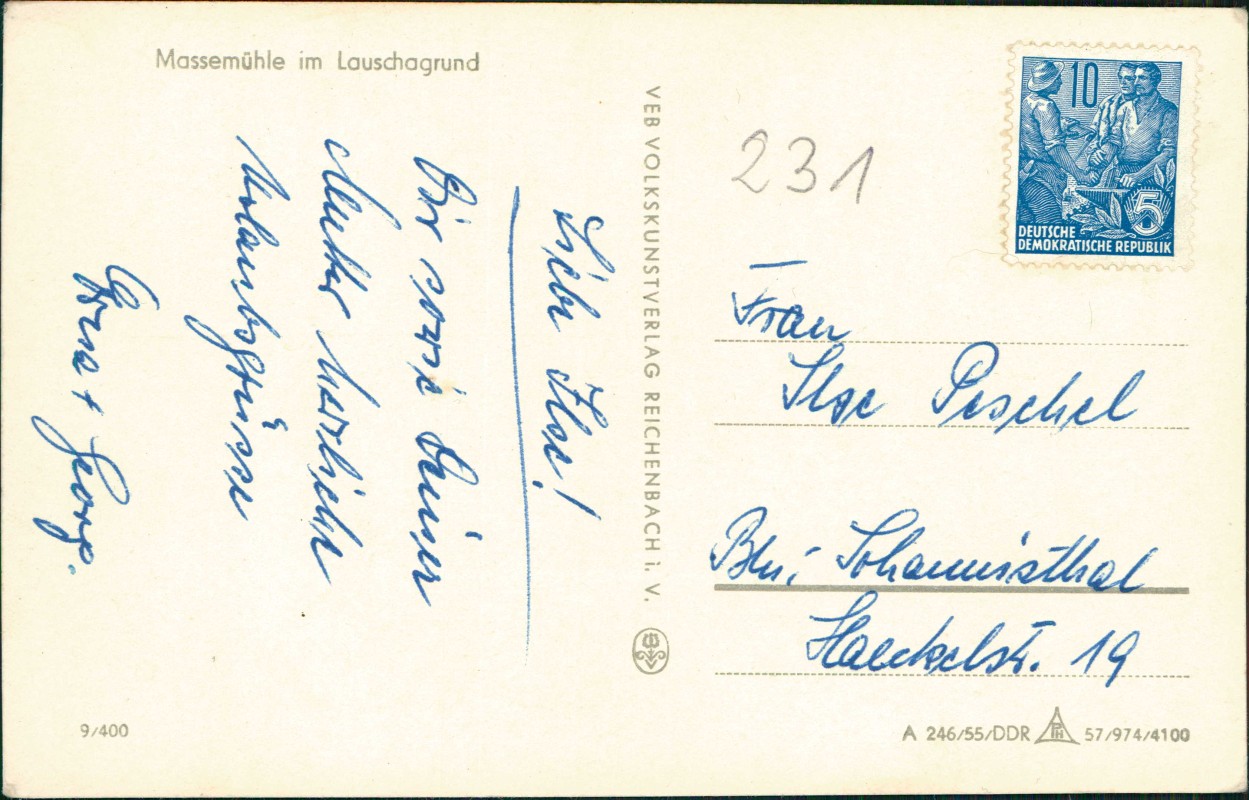 Massemühle im Lauschagrund
Liebe Ilse!
Dir sowie Deiner
Mutter herzliche
Urlaubsgrüsse
Erna + Georg.
VEB VOLKSKUNSTVERLAG REICHENBACH i. V.
231
10
5
DEUTSCHE
DEMOKRATISCHE REPUBLIK
Frau
Ilse Peschel
Bln. Johannisthal
Haeckelstr. 19
9/400
A 246/55/DDR PH 57/974/4100